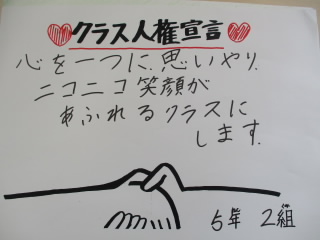 クラス人権宣言
心を一つに、思いやり、
ニコニコ笑顔が
あふれるクラスに
します。
5年 2組